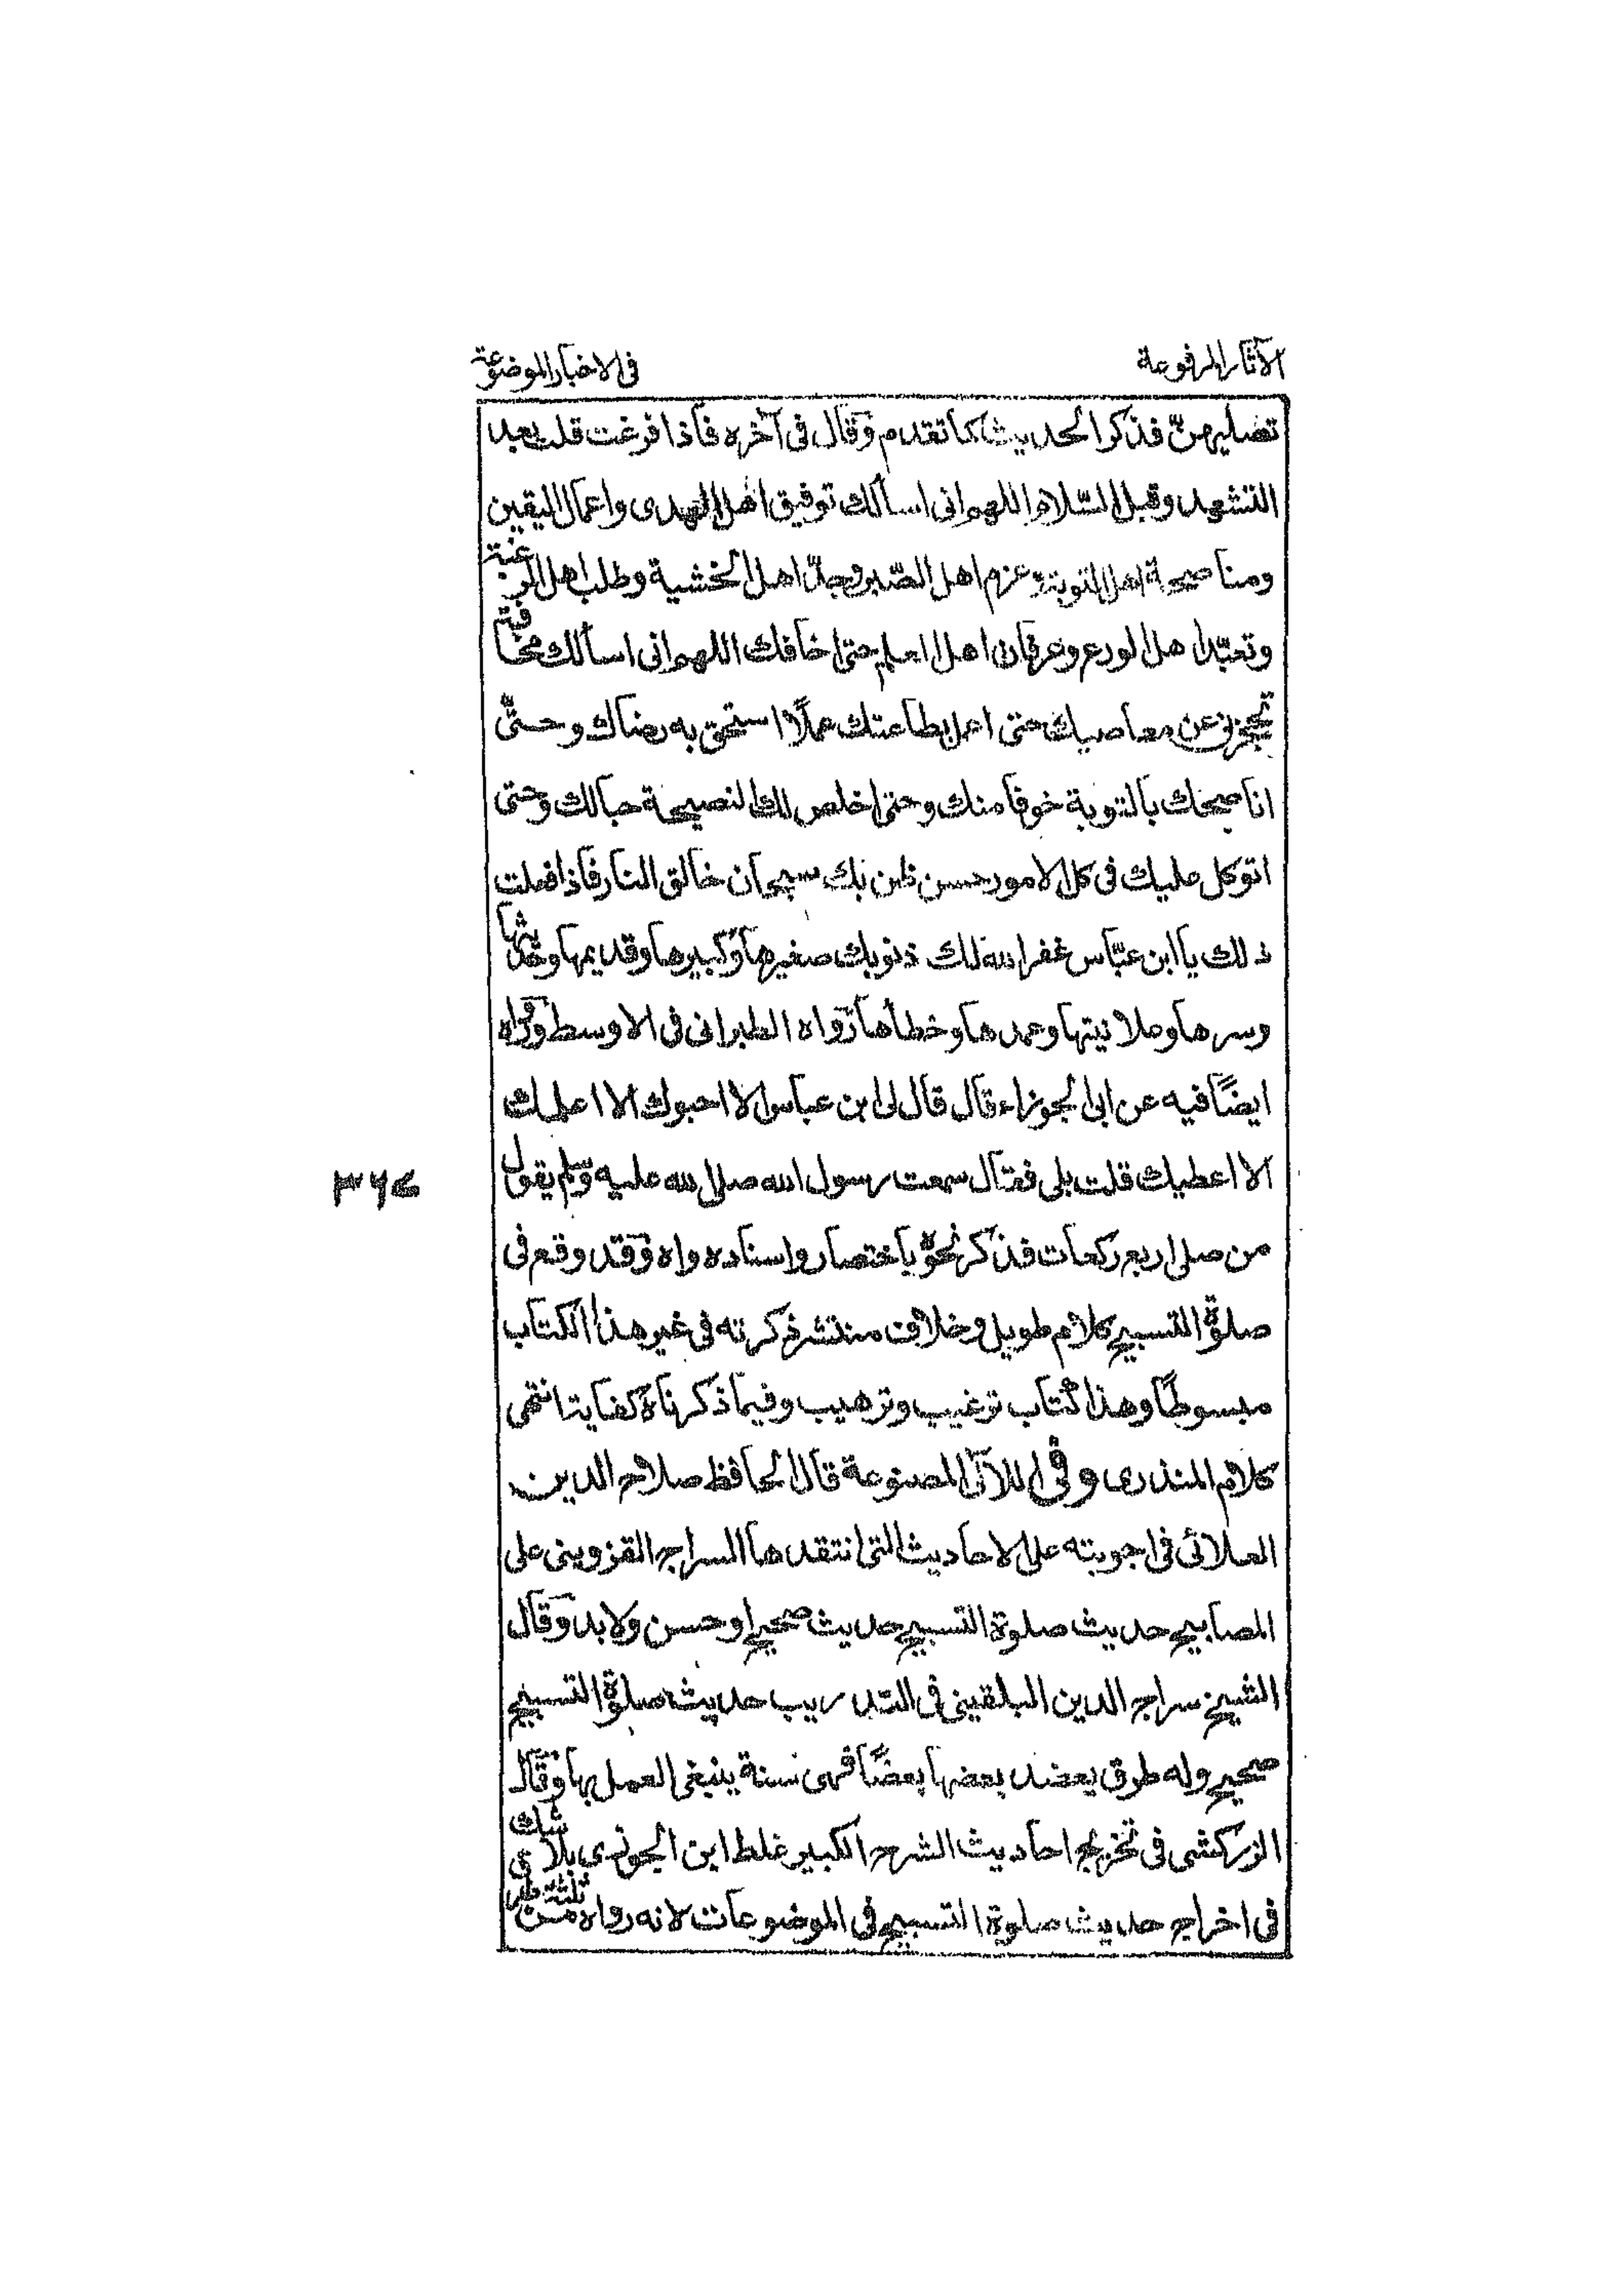 الآثار المرفوعة
فى الاخبار الموضوعة
تصليهن فذكر الحديث كما تقدم وقال فى آخره فاذا فرغت قلت بعد
التشهد وقبل السّلام اللهم انى اسألك توفيق اهل الهدى واعمال اليقين
ومناصحة اهل التوبة وعزم اهل الصّبر وجدّ اهل الخشية وطلب اهل الرغبة
وتعبّد اهل الورع وعرفان اهل العلم حتى اخافك اللهم انى اسألك مخافة
تحجزنى عن معاصيك حتى اعمل بطاعتك عملًا استحق به رضاك وحتّى
اناصحك بالتوبة خوفا منك وحتى اخلص لك النصيحة حبالك وحتى
اتوكل عليك فى كل الامور حسن ظن بك سبحان خالق النار فاذا فعلت
ذلك يا ابن عبّاس غفر الله لك ذنوبك صغيرها وكبيرها وقديمها وحديثها
وسرها وعلانيتها وعمدها وخطأها رواه الطبرانى فى الاوسط ورواه
ايضًا فيه عن ابى الجوزاء قال قال لى ابن عباس الا احبوك الا اعلمك
الا اعطيك قلت بلى فقال سمعت رسول الله صلى الله عليه وسلم يقول
من صلى اربع ركعات فذكر نحوه باختصار واسناده واه وقد وقع فى
صلوة التسبيح كلام طويل وخلاف منتشر ذكرته فى غير هذا الكتاب
مبسوطًا وهذا كتاب ترغيب وترهيب وفيما ذكرناه كفاية انتهى
كلام المنذرى وفى اللآلى المصنوعة قال الحافظ صلاح الدين
العلائى فى اجوبته على الاحاديث التى انتقدها السراج القزوينى على
المصابيح حديث صلوة التسبيح حديث صحيح او حسن ولابد وقال
الشيخ سراج الدين البلقينى فى التدريب حديث صلوة التسبيح
صحيح وله طرق يعضد بعضها بعضًا فهى سنة ينبغى العمل بها وقال
الزركشى فى تخريج احاديث الشرح الكبير غلط ابن الجوزى بلا شك
فى اخراج حديث صلوة التسبيح فى الموضوعات لانه رواه من ثلثة طرق
٣٦٧